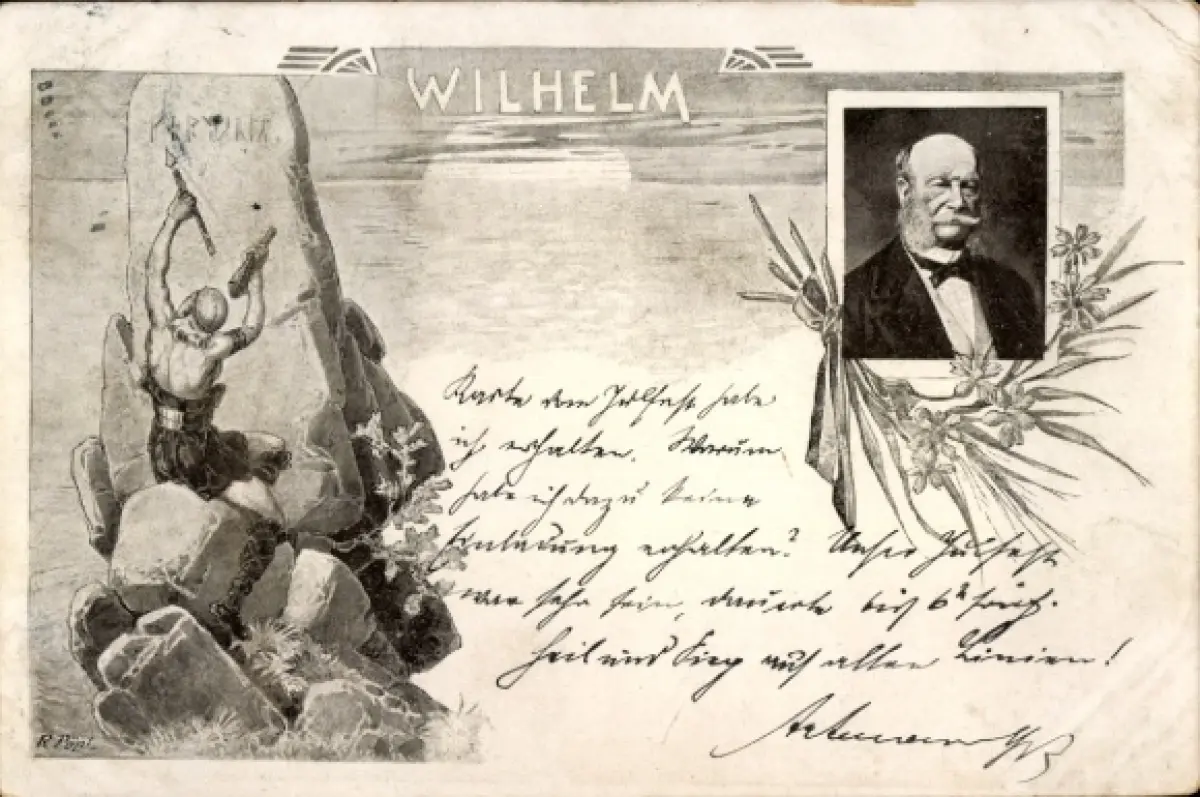 WILHELM
Karte vom Julfest habe
ich erhalten. Warum
habe ich dazu keine
Einladung erhalten? Unser Julfest
war sehr fein, dauerte bis 6h früh.
Heil und Sieg auf allen Linien!